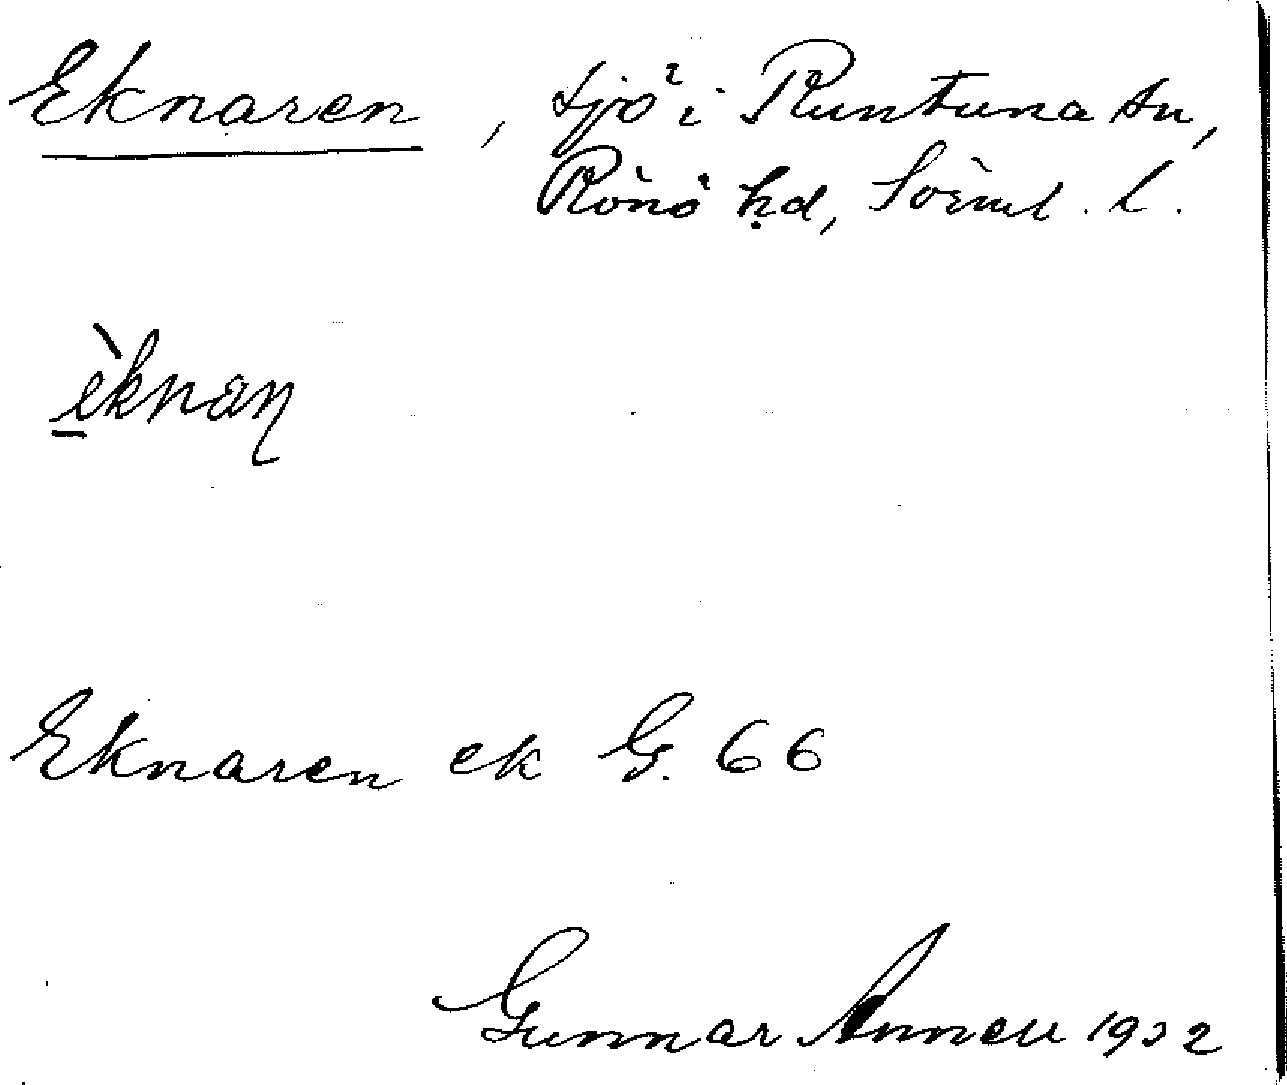 Eknaren, sjö i Runtuna sn,
Rönö hd, Sörml. l.
èknaɳ
Eknaren ek G. 66
Gunnar 1932